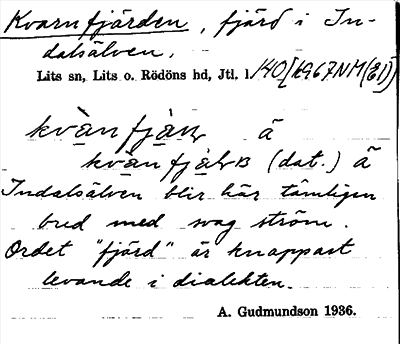 Kvarnfjärden, fjärd i In-
dalsälven.
Lits sn, Lits o. Rödöns hd, Jtl. 1/40 [1967 NM(EI)]
kvànfjàɳ å
kvànfjàɳ (dat.) å
Indalsälven blir här tämligen
bred med svag ström.
Ordet "fjärd" är knappast
levande i dialekten.
A. Gudmundson 1936.